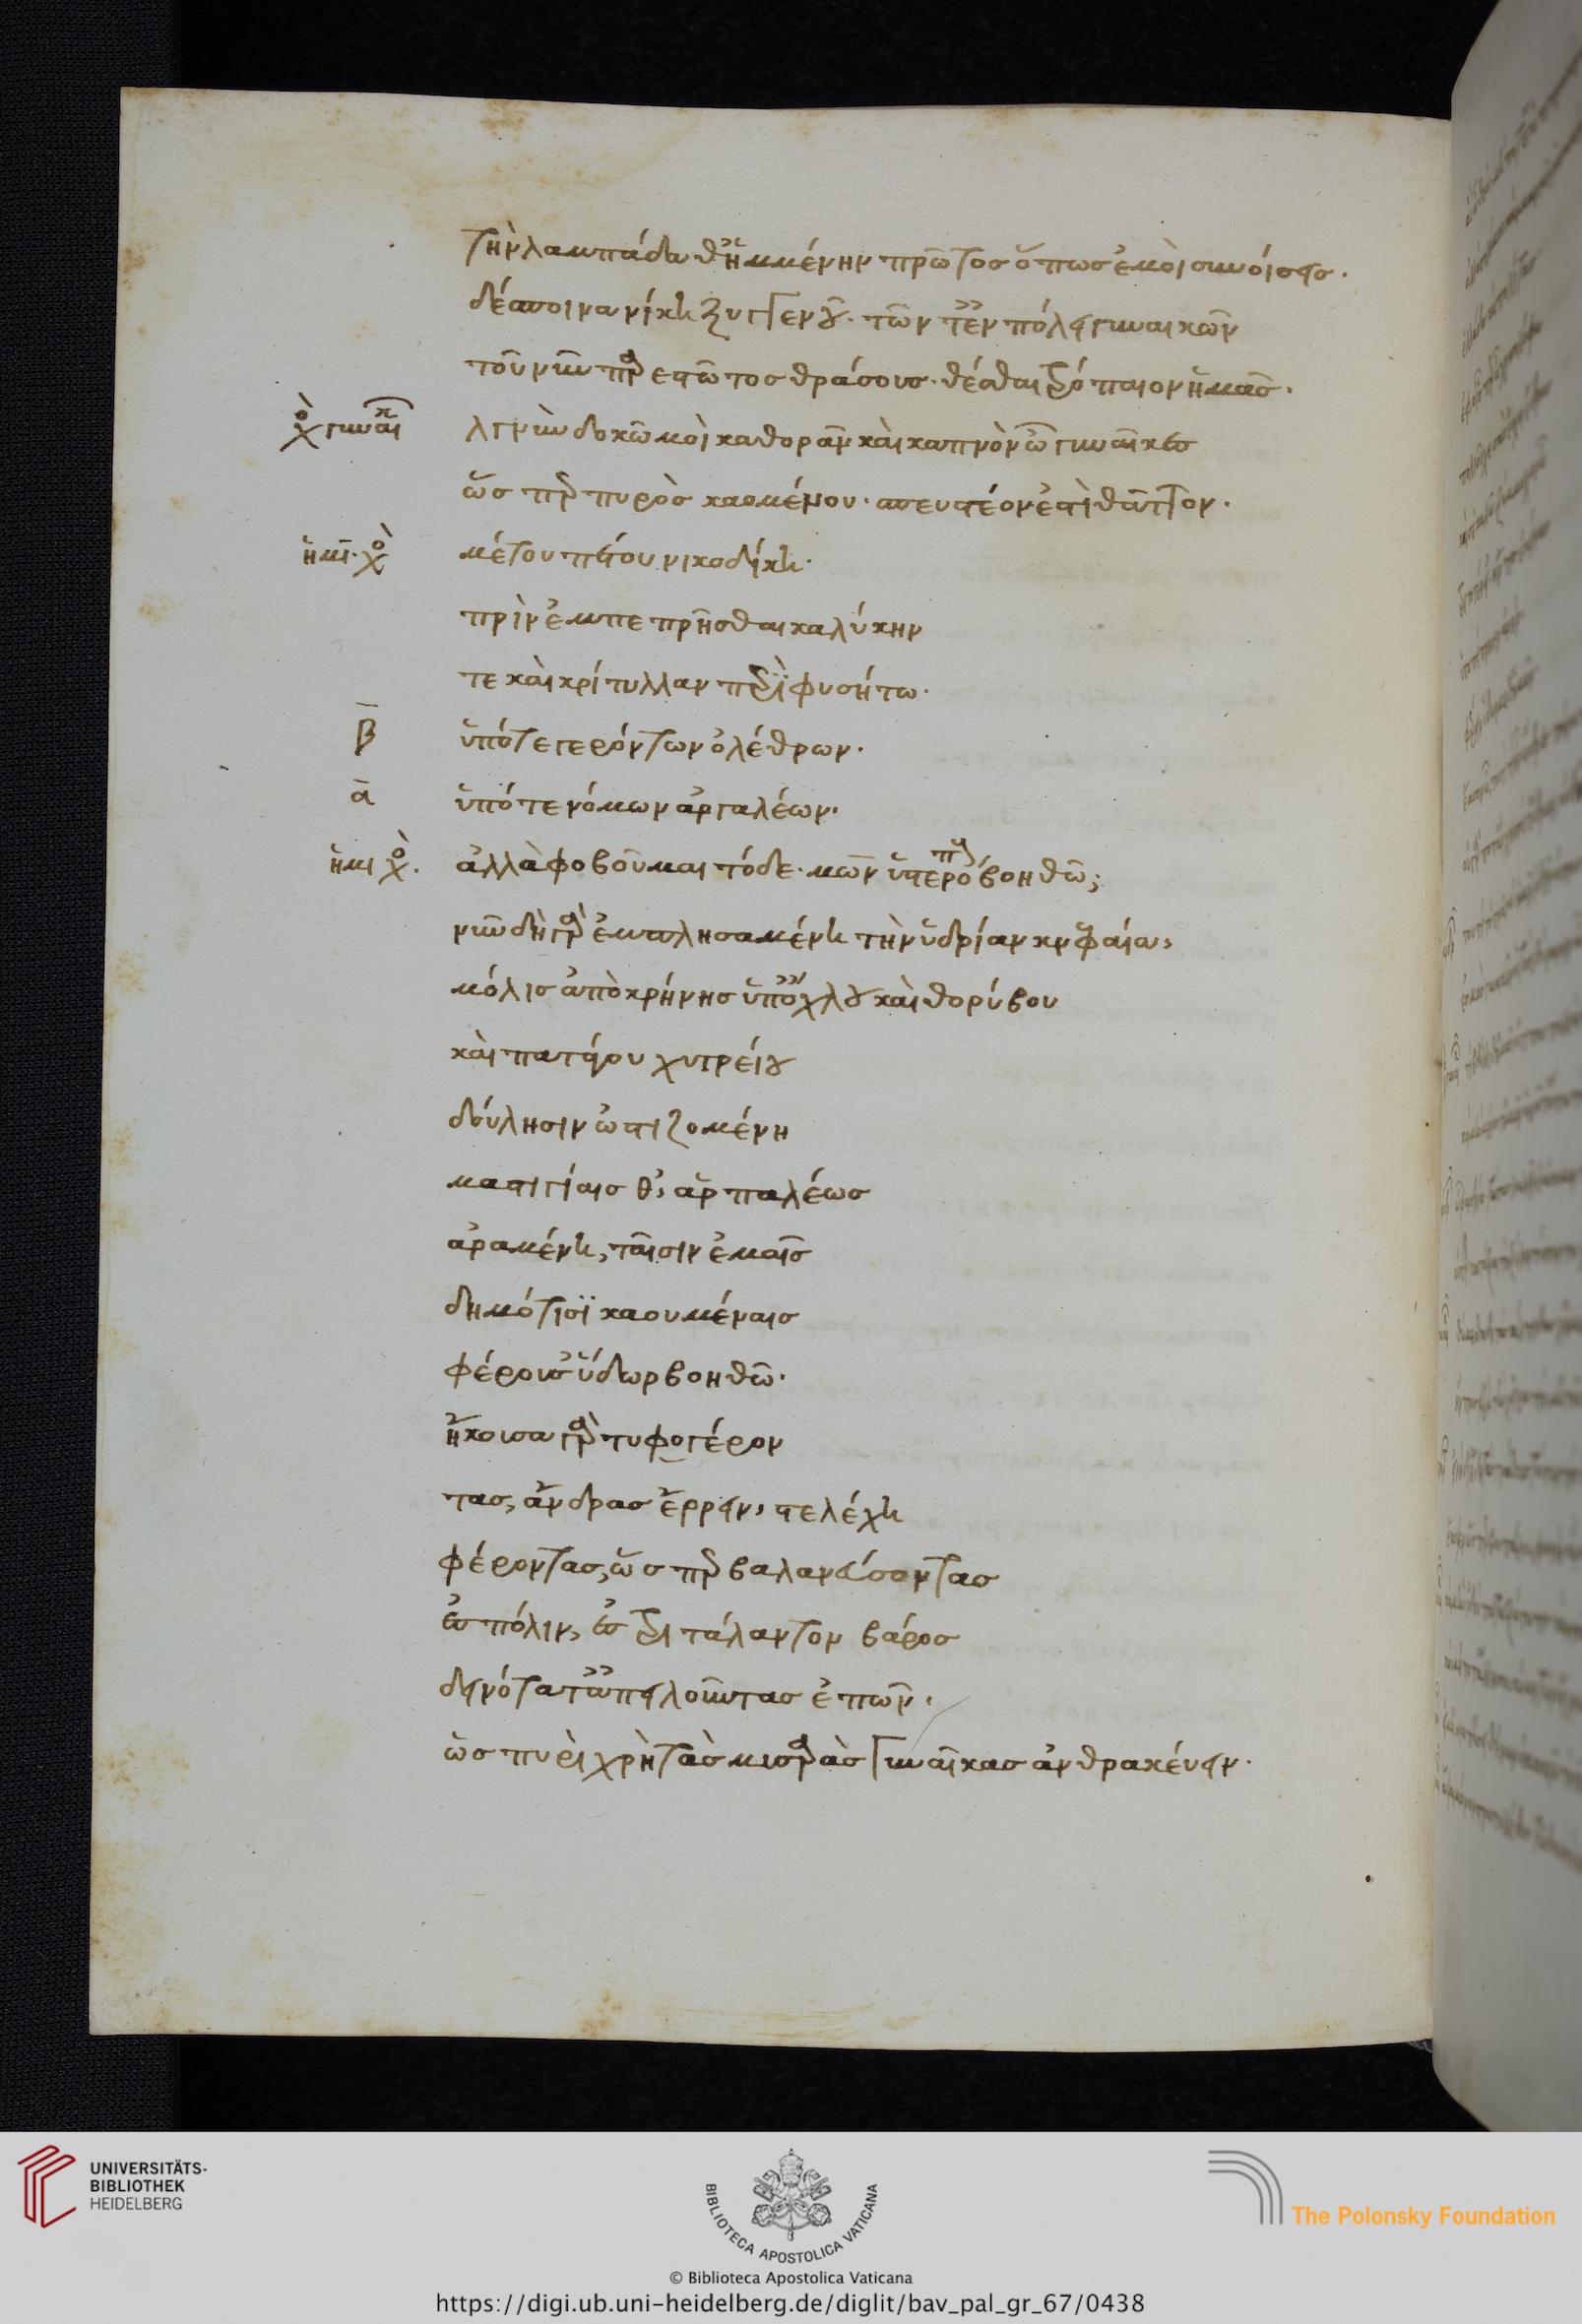 τὴν λαμπάδα θ' ἡμμένην πρῶτος ὅπως ἐμοὶ συνοίσεις.
δέσποινα νίκη ξυγγενοῦ. τῶν τ' ἐν πόλει γυναικῶν
τοῦ νῦν παρεστῶτος θράσους. θέσθαι τρόπαιον ἡμᾶς.
χο γυναικ λιγνὺν δοκῶ μοὶ καθορᾶν καὶ καπνὸν ὦ γυναῖκες
ὥσπερ πυρὸς καομένου. σπευστέον ἐστὶ θᾶττον.
ἡμι. χο πέτου πέτου νικοδίκη.
πρὶν ἐμπεπρῆσθαι καλύκην
τε καὶ κρίτυλλαν περιφυσήτω.
β ὑπό τε γερόντων ὀλέθρων.
α ὑπό τε νόμων ἀργαλέων.
ἡμι χο. ἀλλὰ φοβοῦμαι τόδε. μῶν ὑστερόπους βοηθῶ;
νῦν δὴ γὰρ ἐμπλησαμένη τὴν ὑδρίαν κνεφαία,
μόλις ἀπὸ κρήνης ὑπ' ὄχλου καὶ θορύβου
καὶ πατάγου χυτρείου
δούλησιν ὠστιζομένη
μαστιγίαις θ', ἁρπαλέως
ἀραμένη, ταῖσιν ἐμαῖς
δημότισι καουμέναις
φέρουσ' ὕδωρ βοηθῶ.
ἤκουσα γὰρ τυφογέρον
τας, ἄνδρας ἔρρειν, στελέχη
φέροντας, ὥσπερ βαλανεύσοντας
ἐς πόλιν, ἐς τριτάλαντον βάρος
δεινότατ' ἀπειλοῦντας ἐπῶν.
ὡς πυρὶ χρὴ τὰς μυσαρὰς γυναῖκας ἀνθρακεύειν.
UNIVERSITÄTS-
BIBLIOTHEK
HEIDELBERG
BIBLIOTECA APOSTOLICA VATICANA
The Polonsky Foundation
© Biblioteca Apostolica Vaticana
https://digi.ub.uni-heidelberg.de/diglit/bav_pal_gr_67/0438